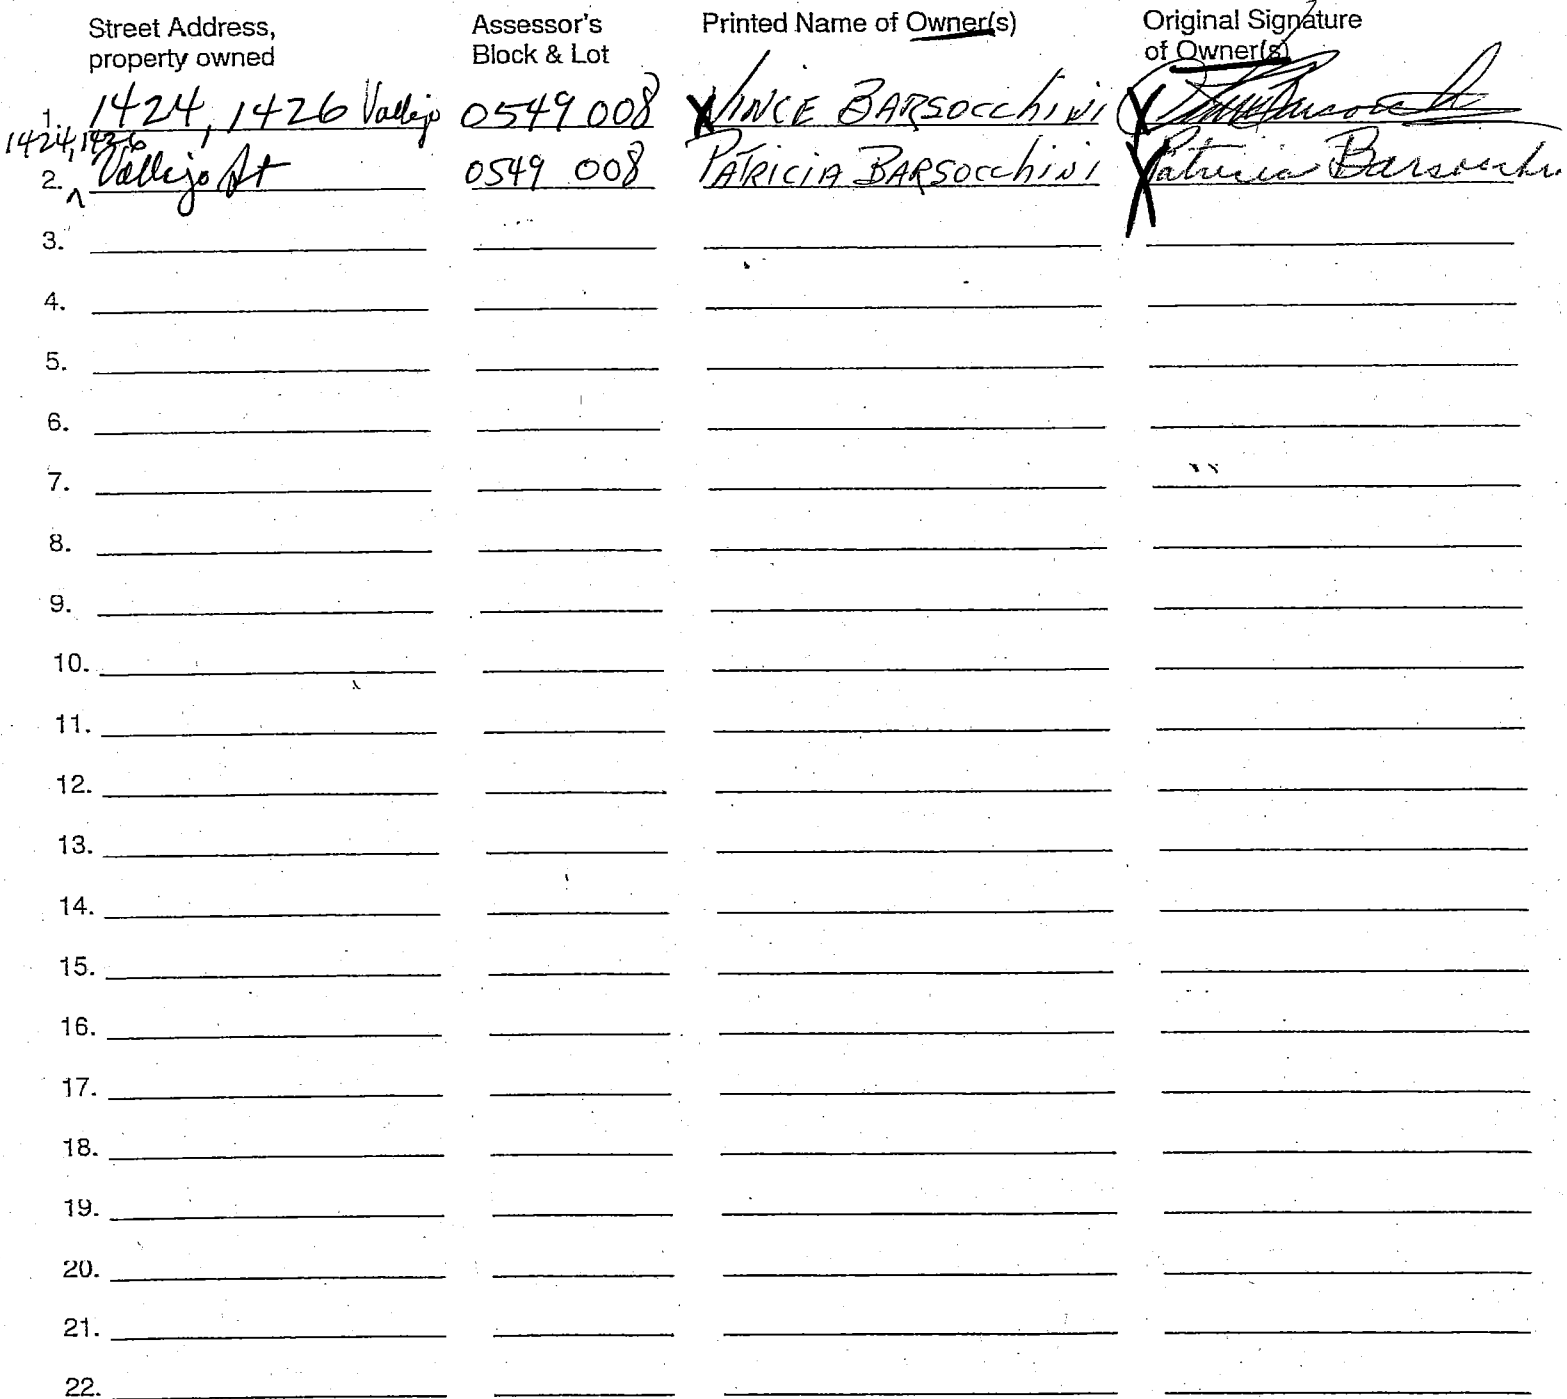 Street Address, property owned Assessor's Block & Lot Printed Name of Owner(s) Original Signature of Owner(s)
1. 1424, 1426 Vallejo 0549 008 X VINCE BARSOCChiNi X
1424, 1426
2. ^ Vallejo St 0549 008 PATRICIA BARSOCChiNi X Patricia Barsocchi
3.
4.
5.
6.
7.
8.
9.
10.
11.
12.
13.
14.
15.
16.
17.
18.
19.
20.
21.
22.